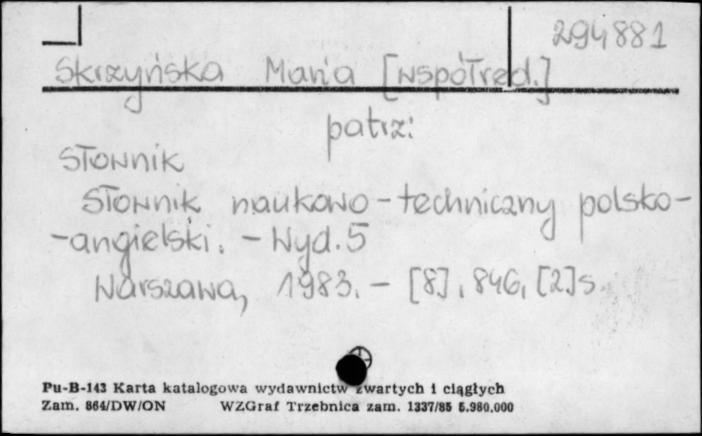 294881
Skrzyńska Maria [współred.]
patrz:
Słownik
Słownik naukowo-techniczny polsko-
-angielski. - Wyd. 5
Warszawa, 1983. - [8], 846, [2] s.
Pu-B-143 Karta katalogowa wydawnictw zwartych i ciągłych
Zam. 864/DW/ON WZGraf Trzebnica zam. 1337/85 5.980.000